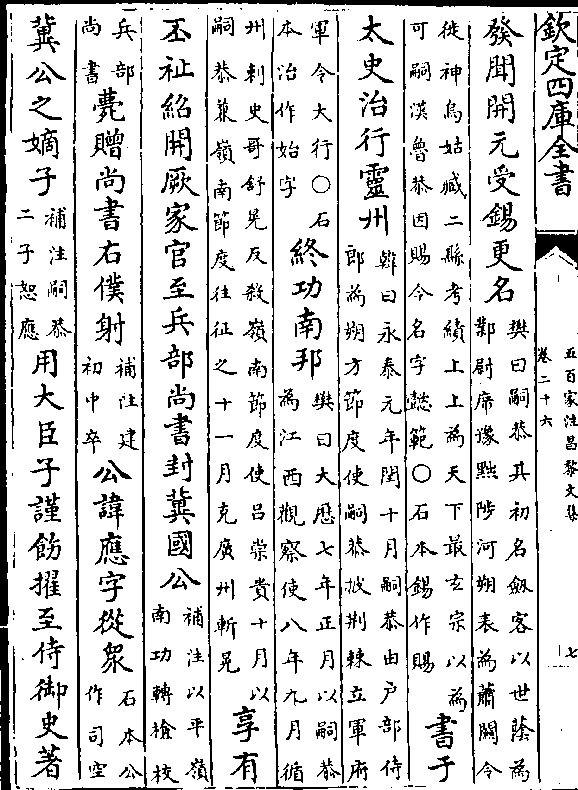 欽定四庫全書
五百家注昌黎文集
卷二十六
七
發聞開元受錫更名
樊曰嗣恭其初名劔客以世蔭為
鄴尉席豫黜陟河朔表為蕭關令
徙神烏姑臧二縣考績上上為天下最玄宗以為
可嗣漢魯恭因賜令名字懿範〇石本錫作賜
書于
太史治行靈州
韓曰永泰元年閏十月嗣恭由户部侍
郎為朔方節度使嗣恭披荆棘立軍府
軍令大行〇石
本治作始字
終功南邦
樊曰大厯七年正月以嗣恭
為江西觀察使八年九月循
州刺史哥舒晃反殺嶺南節度使吕崇賁十月以
嗣恭兼嶺南節度往征之十一月克廣州斬晃
享有
丕祉紹開厥家官至兵部尚書封冀國公
補注以平嶺
南功轉檢校
兵部
尚書
薨贈尚書右僕射
補注建
初中卒
公諱應字從衆
石本公
作司空
冀公之嫡子
補注嗣恭
二子恕應
用大臣子謹飭擢至侍御史著